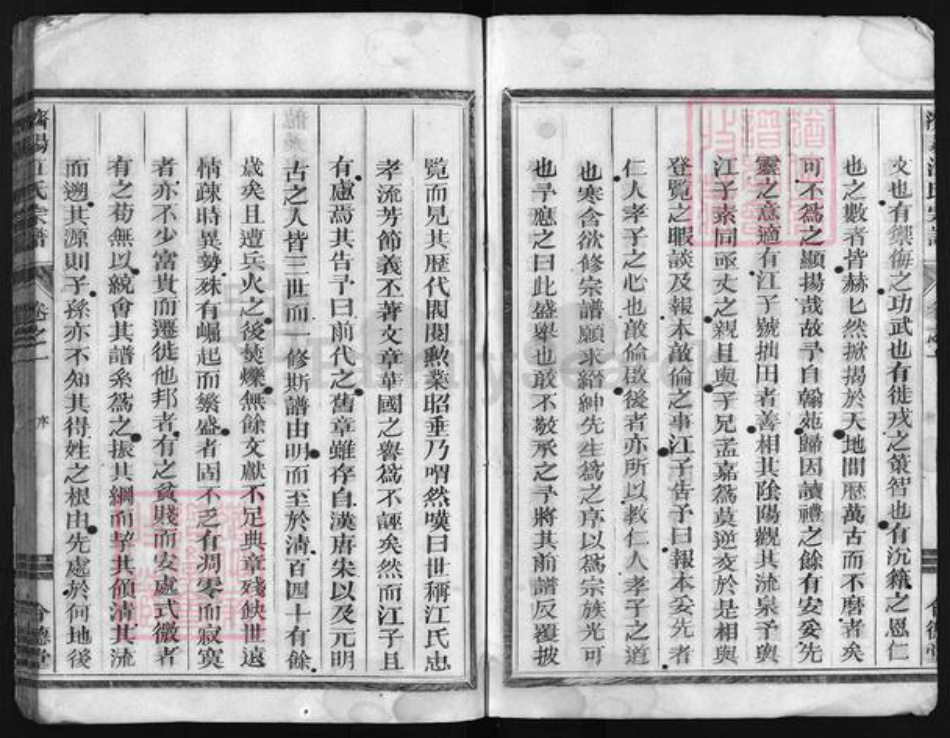 文也有禦侮之功武也有徙戎之策智也有沉籍之恩仁
也之數者皆赫匕然掀揭於天地間歷萬古而不磨者矣
可不為之顯揚哉故予自翰苑歸因讀禮之餘有安妥先
靈之意適有江子號拙田者善相其陰陽觀其流泉予與
江子素同亟丈之親且與予兄孟嘉為莫逆交於是相與
登覽之暇談及報本敦倫之事江子告予曰報本妥先者
仁人孝子之心也敦倫啟後者亦所以教仁人孝子之道
也寒含欲修宗譜願求縉紳先生為之序以為宗族光可
也予應之曰此盛舉也敢不敬承之予將其前譜反覆披
覽而見其歷代閥閱勳業昭垂乃喟然嘆曰世稱江氏忠
孝流芳節義丕著文章華國之譽為不誣矣然而江子且
有慮焉其告予曰前代之舊章雖存自漢唐宋以及元明
古之人皆三世而一修斯譜由明而至於清百四十有餘
歲矣且遭兵火之後焚爍無餘文獻不足典章殘缺世遠
情疎時異勢殊有崛起而繁盛者固不乏有凋零而寂寞
者亦不少富貴而遷徙他邦者有之貧賤而安處式微者
有之苟無以統會其譜系為之振其綱而挈其領清其流
而遡其源則子孫亦不知其得姓之根由先處於何地後
濟陽江氏宗譜 卷之一